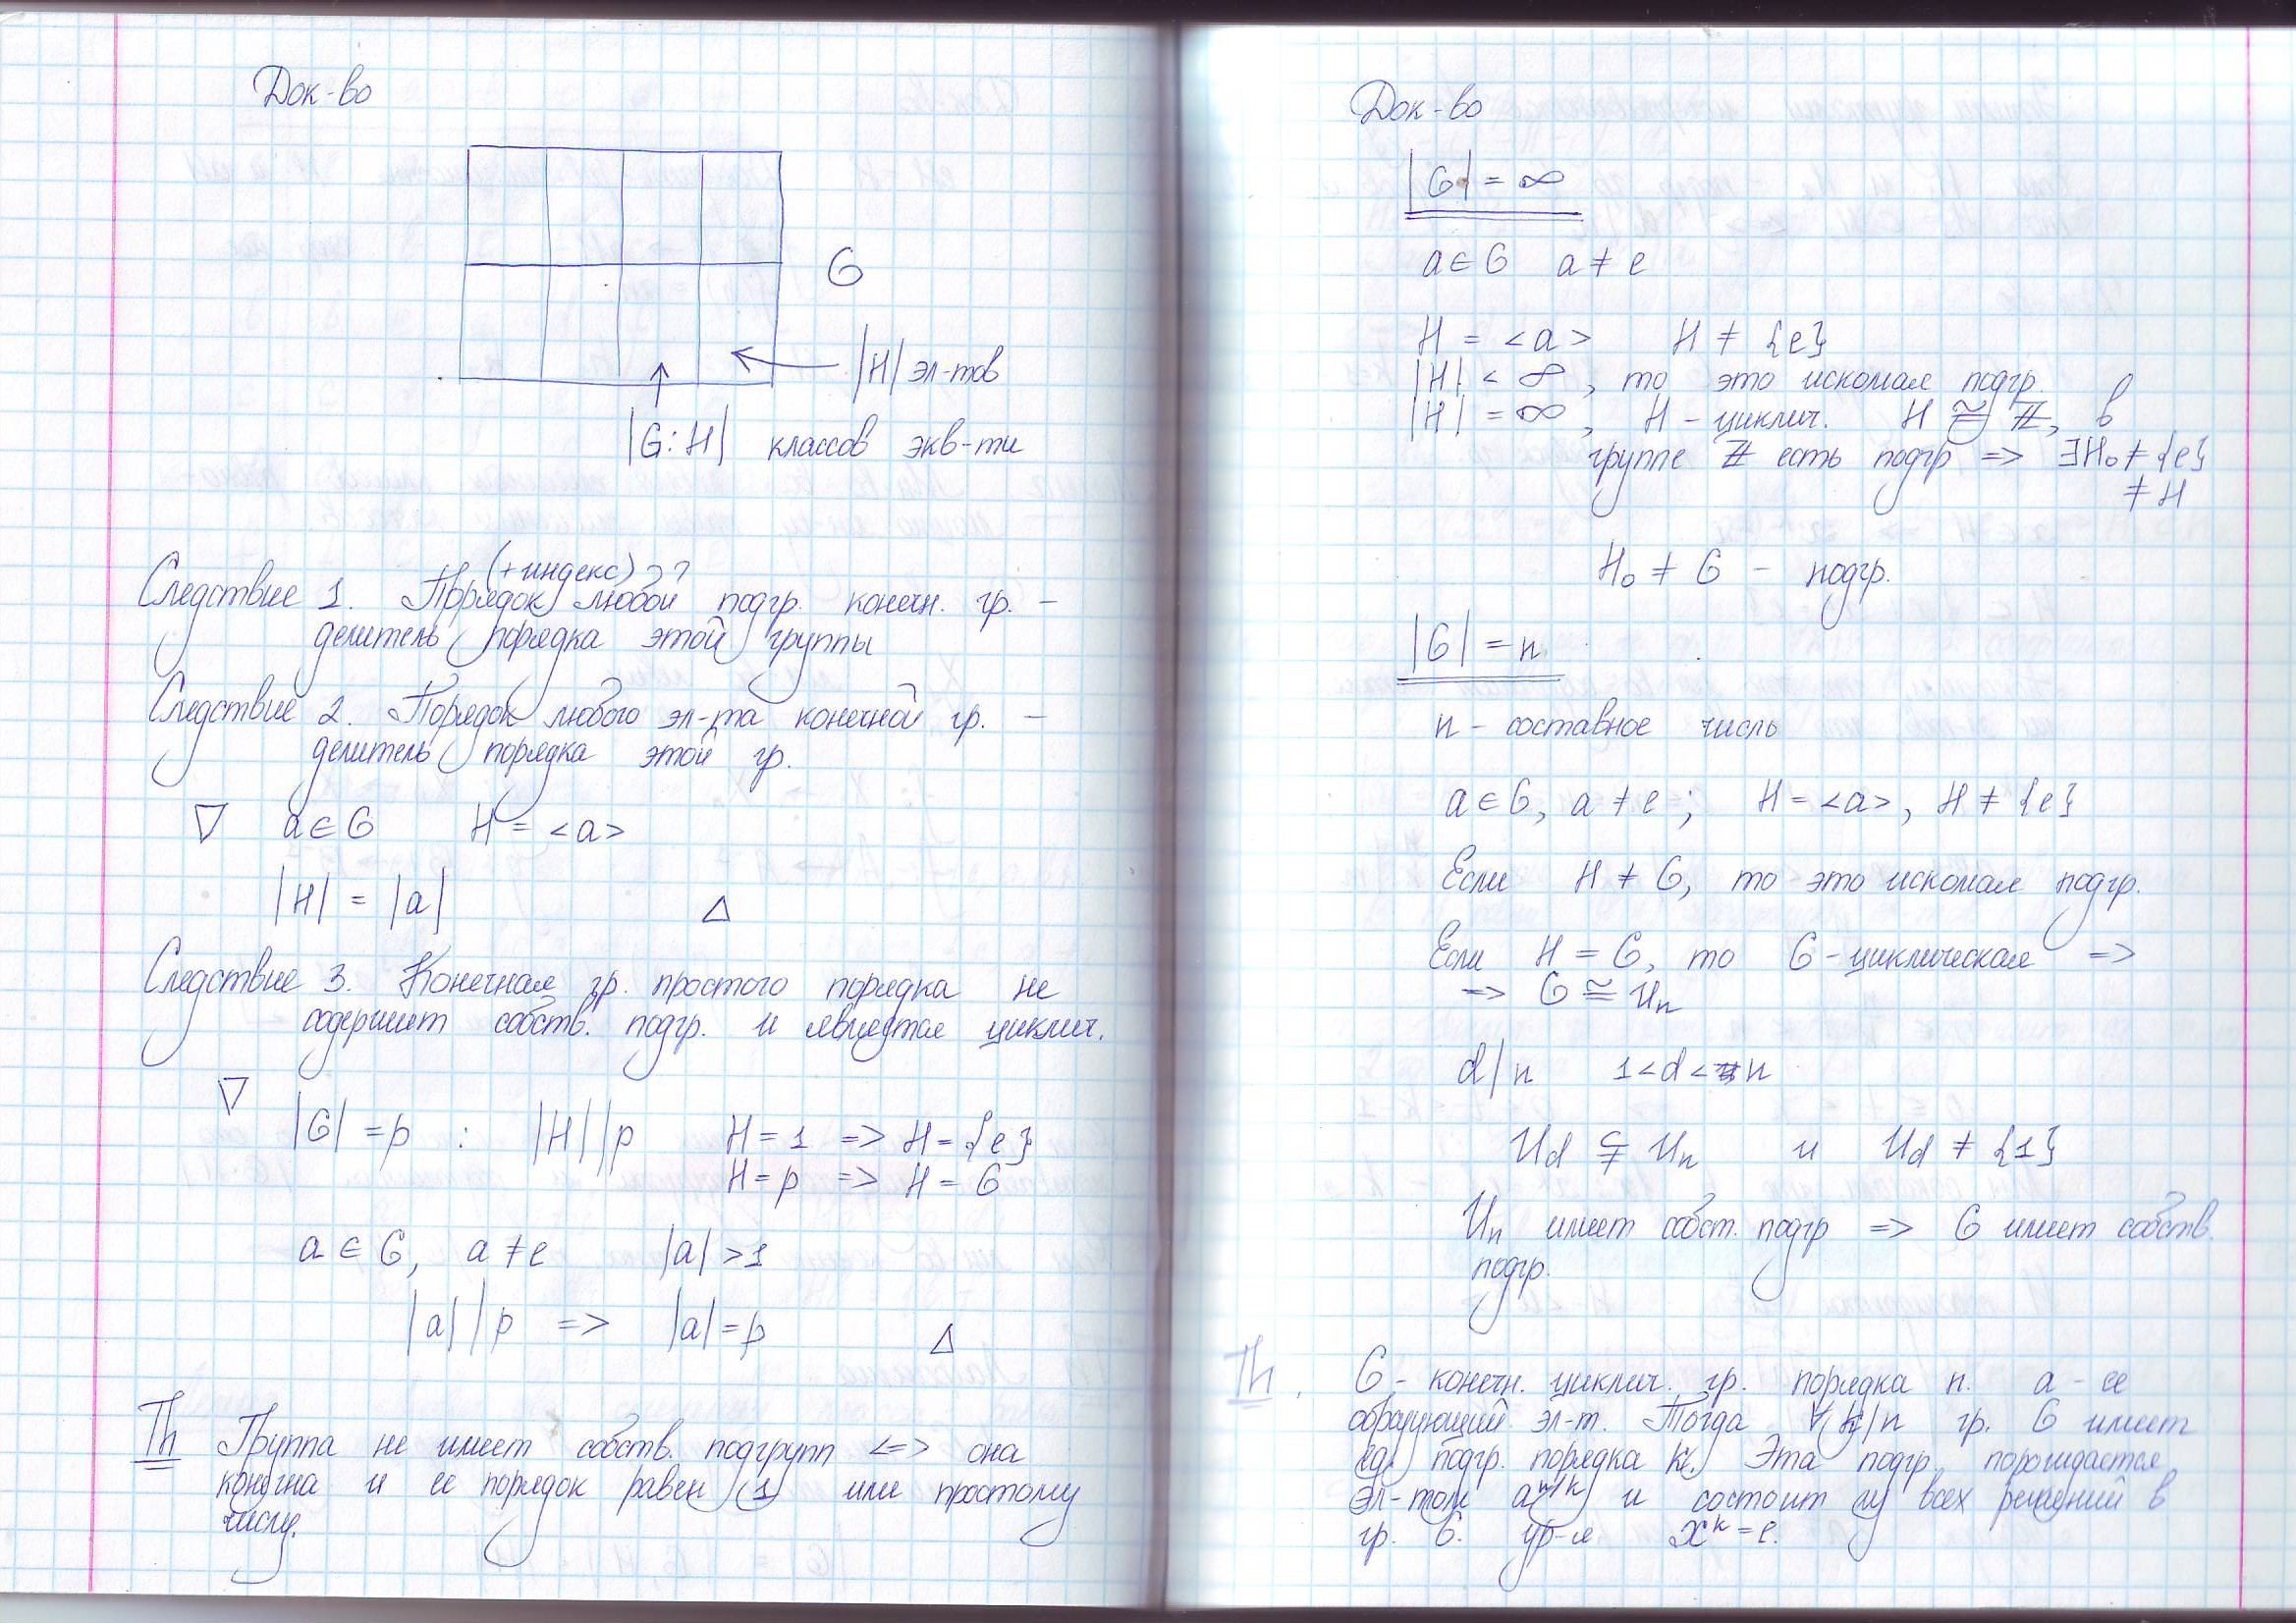 Док-во
G
|H| эл-тов
|G:H| классов экв-ти
(+индекс)??
Следствие 1. Порядок любой подгр. конечн. гр. –
делитель порядка этой группы
Следствие 2. Порядок любого эл-та конечной гр. –
делитель порядка этой гр.
▽ a ∈ G H = <a>
|H| = |a| △
Следствие 3. Конечная гр. простого порядка не
содержит собств. подгр. и является циклич.
▽
|G| = p : |H| | p H = 1 => H = {e}
H = p => H = G
a ∈ G, a ≠ e |a| > 1
|a| | p => |a| = p △
Th Группа не имеет собств. подгрупп <=> она
конечна и ее порядок равен 1 или простому
числу.
Док-во
|G| = ∞
a ∈ G a ≠ e
H = <a> H ≠ {e}
|H| < ∞, то это искомая подгр.
|H| = ∞, H – циклич. H ≅ ℤ, в
группе ℤ есть подгр => ∃H₀ ≠ {e}
≠ H
H₀ ≠ G – подгр.
|G| = n
n – составное число
a ∈ G, a ≠ e; H = <a>, H ≠ {e}
Если H ≠ G, то это искомая подгр.
Если H = G, то G – циклическая =>
=> G ≅ Uₙ
d | n 1 < d < n
U_d ⊊ Uₙ и U_d ≠ {1}
Uₙ имеет собст. подгр => G имеет собств.
подгр.
Th. G – конечн. циклич. гр. порядка n. a – ее
образующий эл-т. Тогда ∀ k | n гр. G имеет
ед. подгр. порядка k. Эта подгр. порождается
эл-том a^{n/k} и состоит из всех решений в
гр. G. ур-я x^k = e.